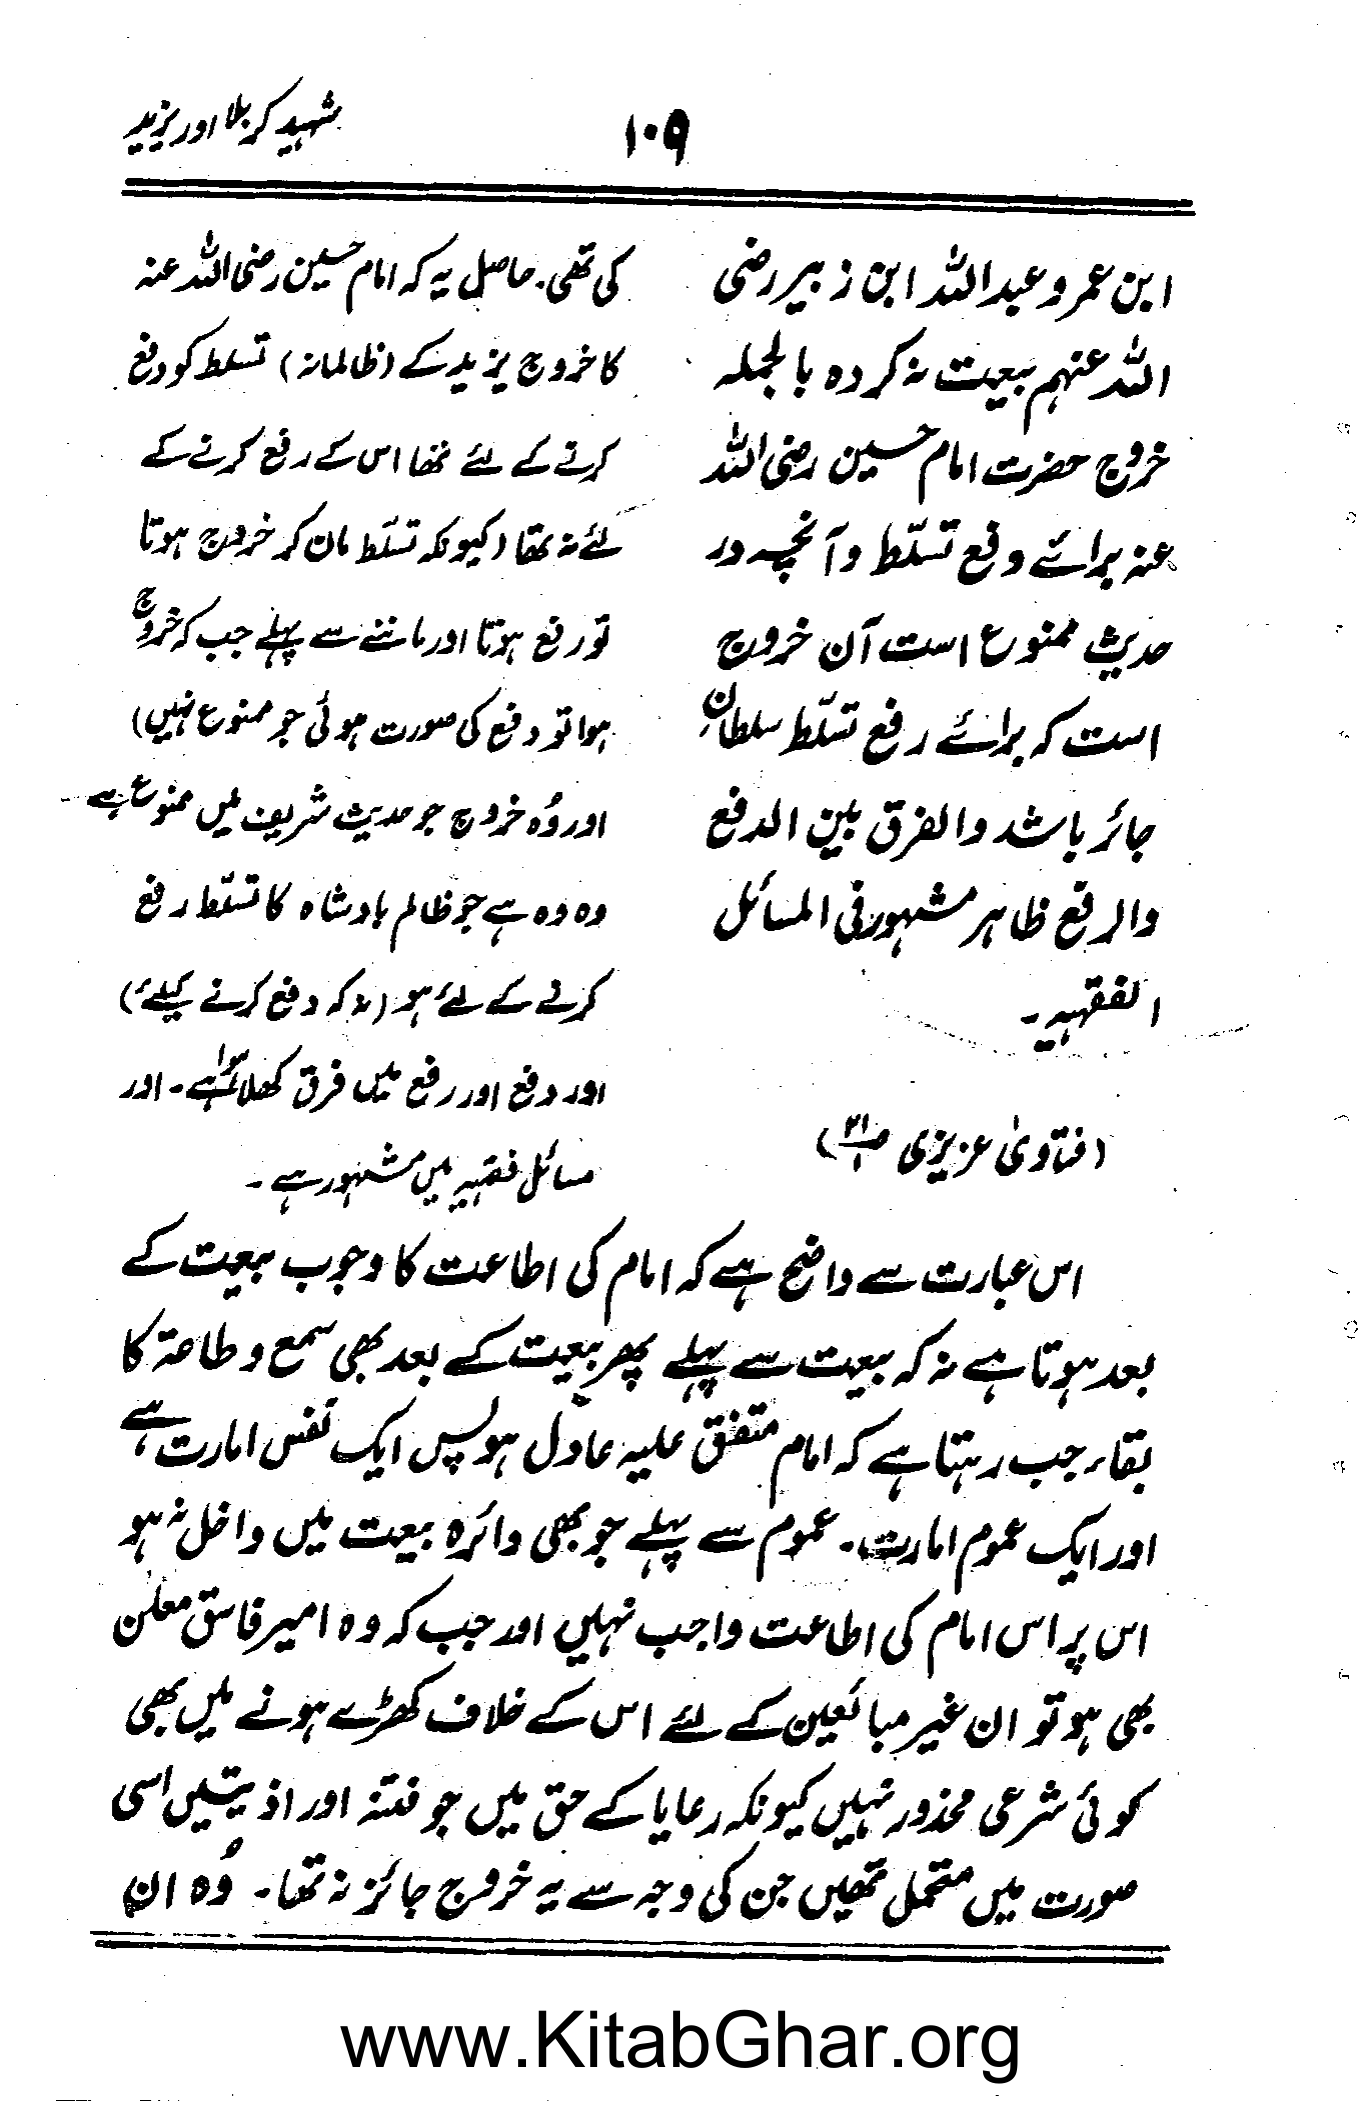 شہید کربلا اور یزید
۱۰۹
ابن عمر و عبداللہ ابن زبیر رضی
اللہ عنہم بیعت نہ کردہ بالجملہ
خروج حضرت امام حسین رضی اللہ
عنہ برائے دفع تسلّط و آنچہ در
حدیث ممنوع است آن خروج
است کہ برائے رفع تسلّط سلطانِ
جائر باشد والفرق بین الدفع
والرفع ظاہر مشہور فی المسائل
الفقہیہ ۔
(فتاویٰ عزیزی ص ۲۱/۱)
کی تھی ۔ حاصل یہ کہ امام حسین رضی اللہ عنہ
کا خروج یزید کے (ظالمانہ) تسلط کو دفع
کرنے کے لئے تھا اس کے رفع کرنے کے
لئے نہ تھا (کیونکہ تسلّط مان کر خروج ہوتا
تو رفع ہوتا اور ماننے سے پہلے جب کہ خروج
ہوا تو دفع کی صورت ہوئی جو ممنوع نہیں)
اور وُہ خروج جو حدیث شریف میں ممنوع ہے
وہ وہ ہے جو ظالم بادشاہ کا تسلّط رفع
کرنے کے لئے ہو (نہ کہ دفع کرنے کیلئے)
اور دفع اور رفع میں فرق کھلا ہوا ہے ۔ اور
مسائل فقہیہ میں مشہور ہے ۔
اس عبارت سے واضح ہے کہ امام کی اطاعت کا وجوب بیعت کے
بعد ہوتا ہے نہ کہ بیعت سے پہلے پھر بیعت کے بعد بھی سمع و طاعۃ کا
بقاء جب رہتا ہے کہ امام متفق علیہ عادل ہو پس ایک نفس امارت ہے
اور ایک عموم امارت ۔ عموم سے پہلے جو بھی دائرہ بیعت میں داخل نہ ہو
اس پر اس امام کی اطاعت واجب نہیں اور جب کہ وہ امیر فاسق معلن
بھی ہو تو ان غیر مبائعین کے لئے اس کے خلاف کھڑے ہونے میں بھی
کوئی شرعی محذور نہیں کیونکہ رعایا کے حق میں جو فتنہ اور اذیتیں اسی
صورت میں متحمل تھیں جن کی وجہ سے یہ خروج جائز نہ تھا ۔ وُہ ان
www.KitabGhar.org